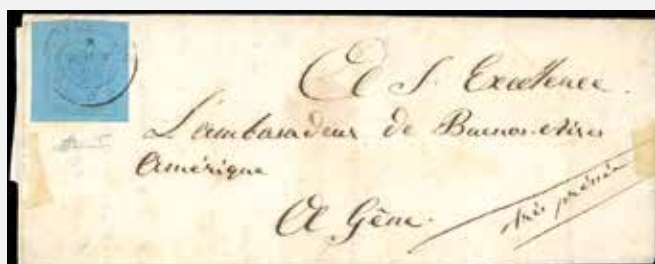 A S. Excellence.
L'ambasadeur de Buenos-Aires
Amérique
A Gêne.
très pressée